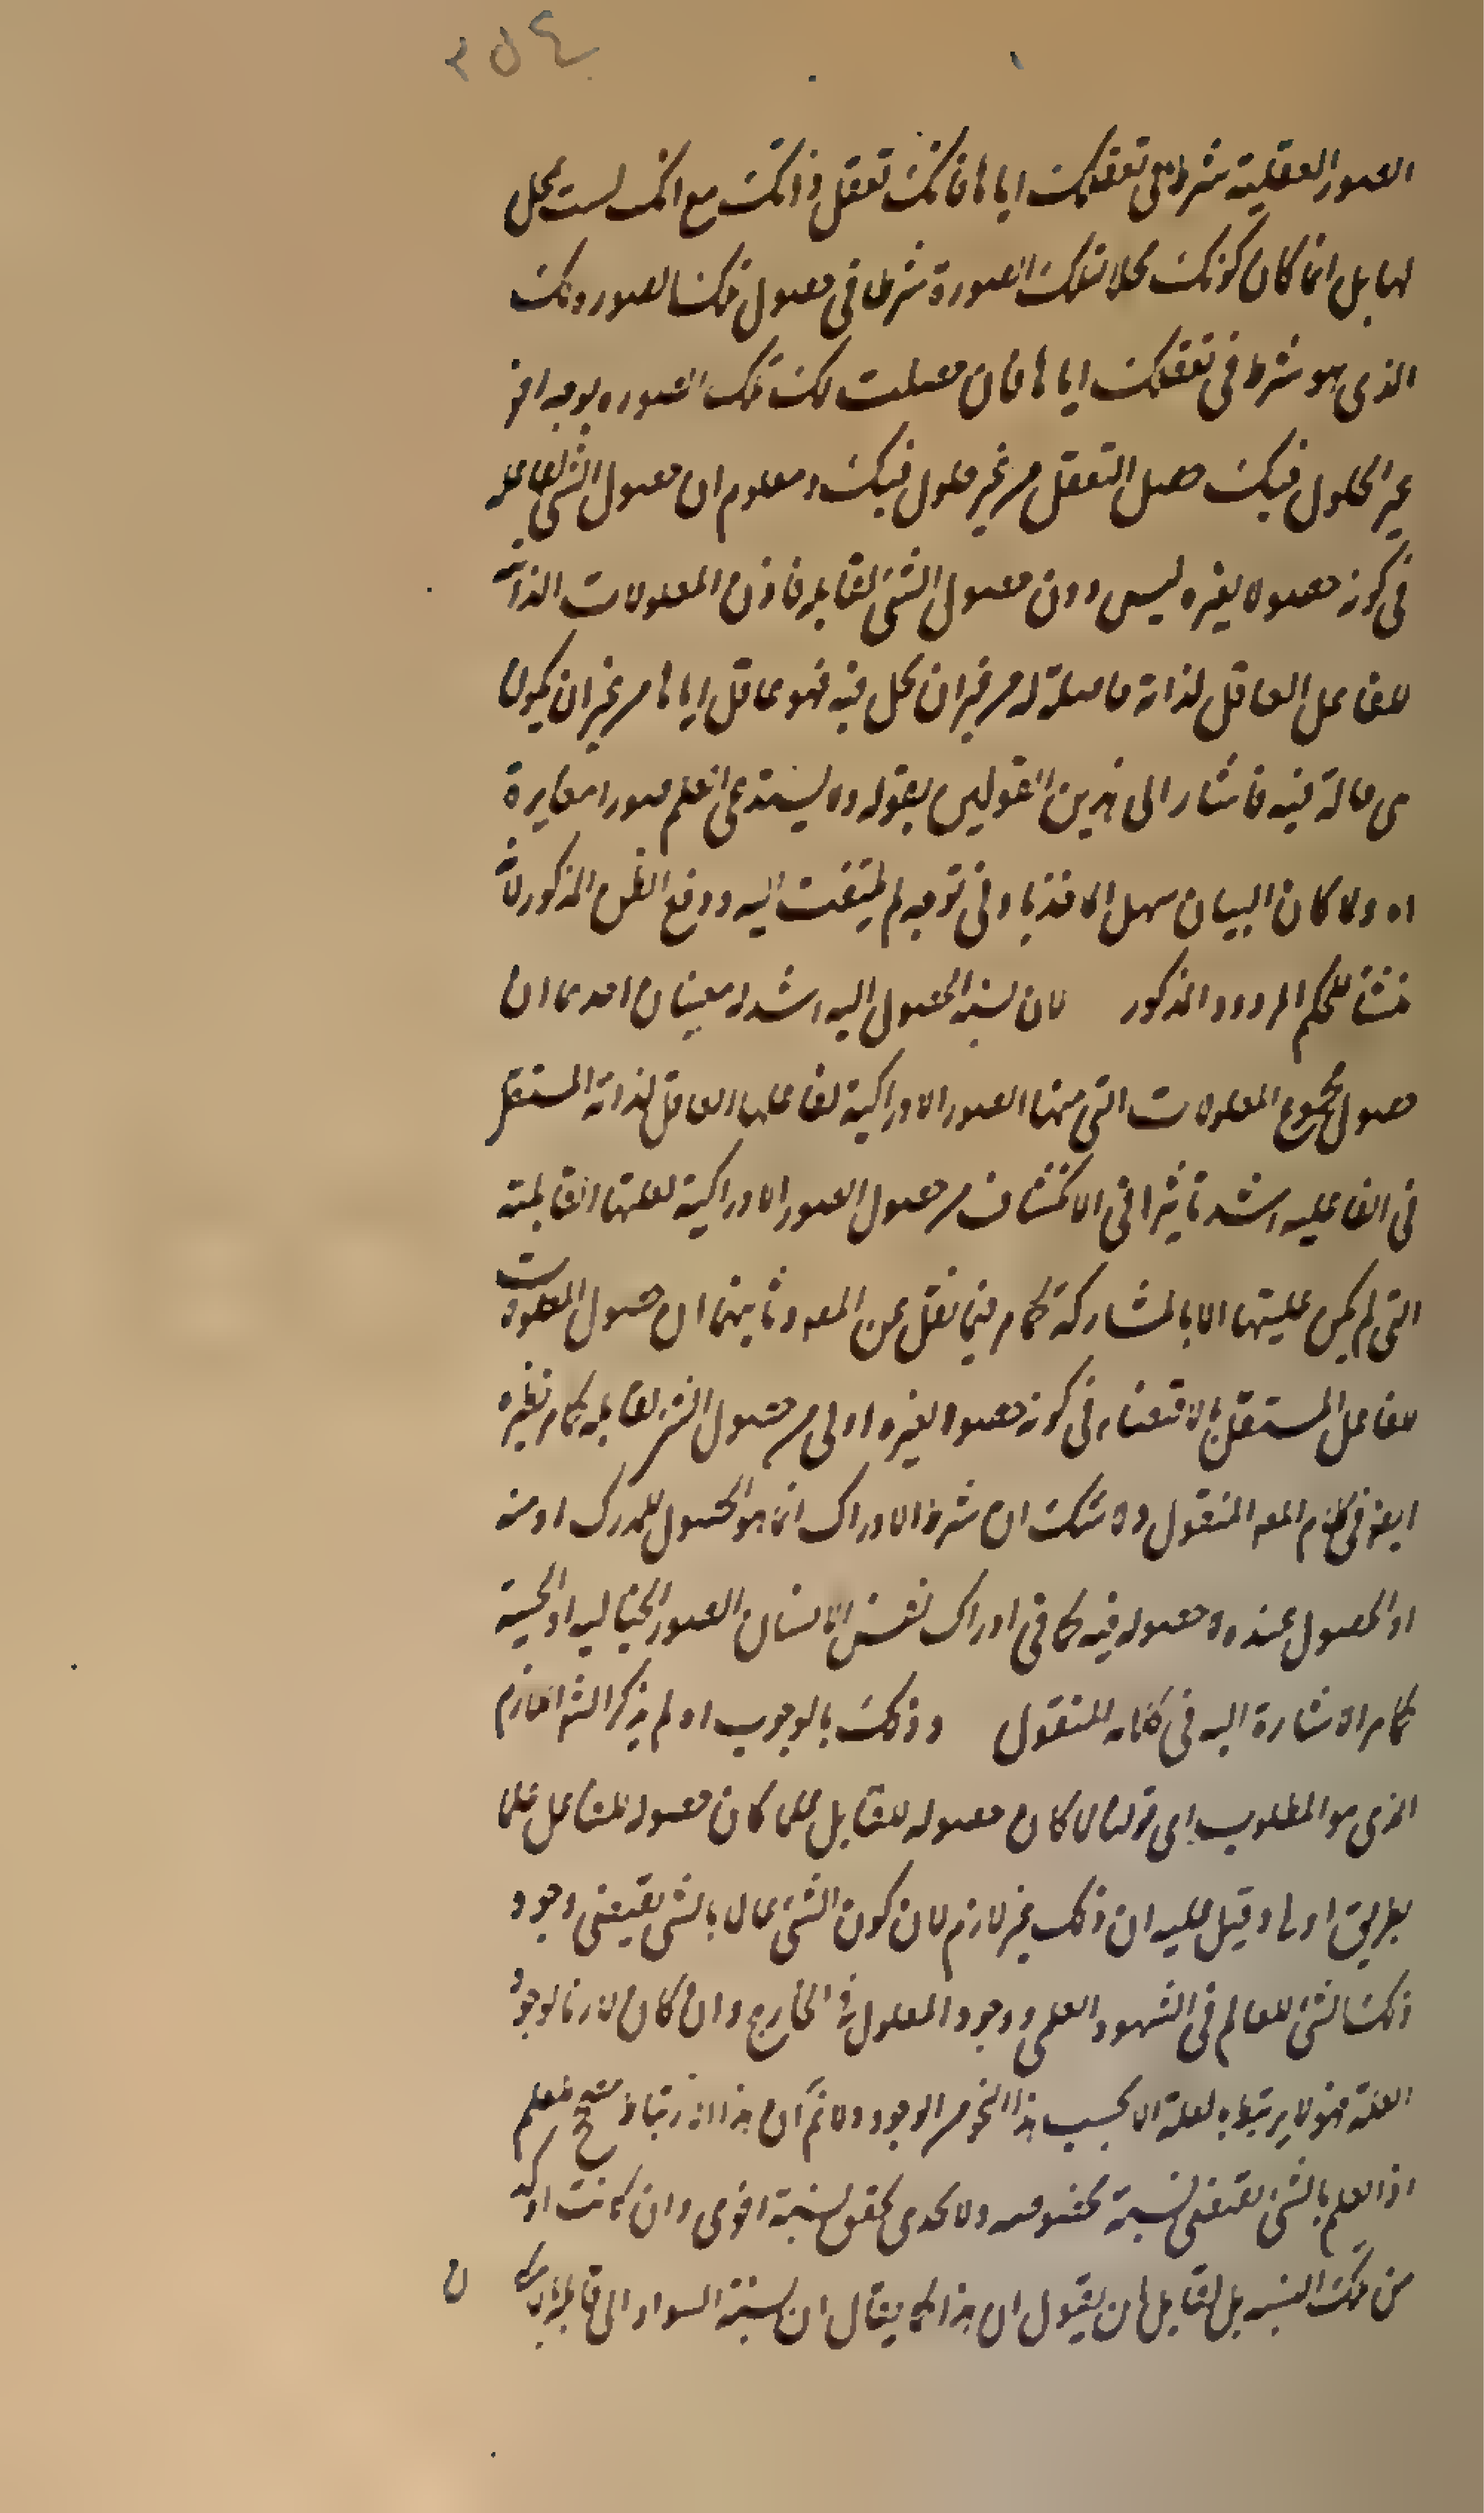 ٢٥٤
الصور العقلية شرطا فى تعقلك اياها فانك تعقل ذاتك مع انك لست بمحل
لها بل انما كان كونك محلا لتلك الصورة شرطا فى حصول تلك الصور لك
الذى هو شرط فى تعقلك اياها فان حصلت لك تلك الصوره بوجه اخر
غير الحلول فيك حصل التعقل من غير حلول فيك ومعلوم ان حصول الشئ لفاعله
فى كونه حصولا لغيره ليس دون حصول الشئ لقابله فاذن المعلولات الذاتية
للفاعل العاقل لذاته حاصلة له من غير ان تحل فيه فهو عاقل اياها من غير ان يكون
هى حالة فيه فاشار الى هذين القولين بقوله ولا يستدعى العلم صورا مغايرة
اه ولما كان البيان سهل الماخذ بادنى توجه لم يلتفت اليه ودفع الظن المذكور لانه
منشأ للحكم المردود المذكور لان نسبة الحصول اليه اشد له معنيان احدهما ان
حصول مجموع المعلولات التى منها الصور الادراكية لفاعلها العاقل لذاته المستقل
فى الفاعليه اشد تأثيرا فى الانكشاف من حصول الصور الادراكية لعلتها القابلية
التى لم يكن عليتها الا بالمشاركة كما مر فيما نقل عن المصه وثانيهما ان حصول المعلولات
للفاعل المستقل بالاقتضاء فى كونه حصولا لغيره اولى من حصول الشئ لقابله كما مر نظيره
ايضا فى كلام المصه المنقول ولا شك ان شرط الادراك انما هو الحصول للمدرك او منه
او الحصول عنده لا حصوله فيه كما فى ادراك نفس الانسان الصور الخياليه او الحسية
كما مر الاشارة اليه فى كلامه المنقول وذلك بالوجوب اه لم يذكر الشه اللازم
الذى هو المطلوب اى قولنا لما كان حصوله للقابل علما كان حصوله للفاعل علما
بطريق اولى وقيل عليه ان ذلك غير لازم لان كون الشئ عالما بالشئ يقتضى وجود
ذلك الشئ للعالم فى الشهود العلمى ووجود المعلول فى الخارج وان كان لازما لوجود
العلة فهو لا يرتبط بالعلة الا بحسب هذا النحو من الوجود ولا نم ان هذا الارتباط مصحح للعلم
اذ العلم بالشئ يقتضى نسبة مخصوصه ولا يجدى تحقق نسبة اخرى وان كانت اوكد
من تلك النسبه بل لقابل ان يقول ان هذا كما يقال ان نسبة السواد الى قابله بالامكان